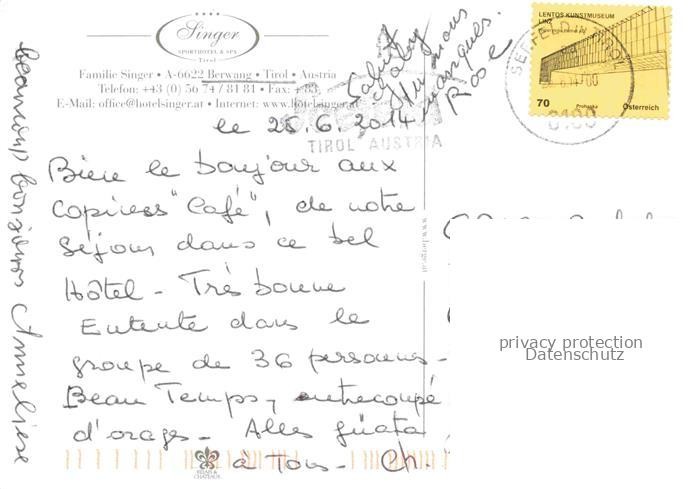 Singer
SPORTHOTEL & SPA
Tirol
Familie Singer • A-6622 Berwang • Tirol • Austria
Telefon: +43 (0) 56 74 / 81 81 • Fax: + 83
E-Mail: office@hotelsinger.at • Internet: www.hotelsinger.at
le 25.6.2014
Bien le bonjour aux
copines "Café", de notre
Séjour dans ce bel
Hôtel - Très bonne
Entente dans le
groupe de 36 personnes -
Beau Temps, entrecoupé
d'orages - Alles güata
à Tous - Ch.
Salut
Gaby
tu nous
manques.
Rose
beaucoup bonjours Anneliese
TIROL AUSTRIA
LENTOS KUNSTMUSEUM
LINZ
70
Prohaska
Österreich
SEEFELD IN TIROL
6100
www.berger.at
RELAIS &
CHATEAUX
privacy protection
Datenschutz